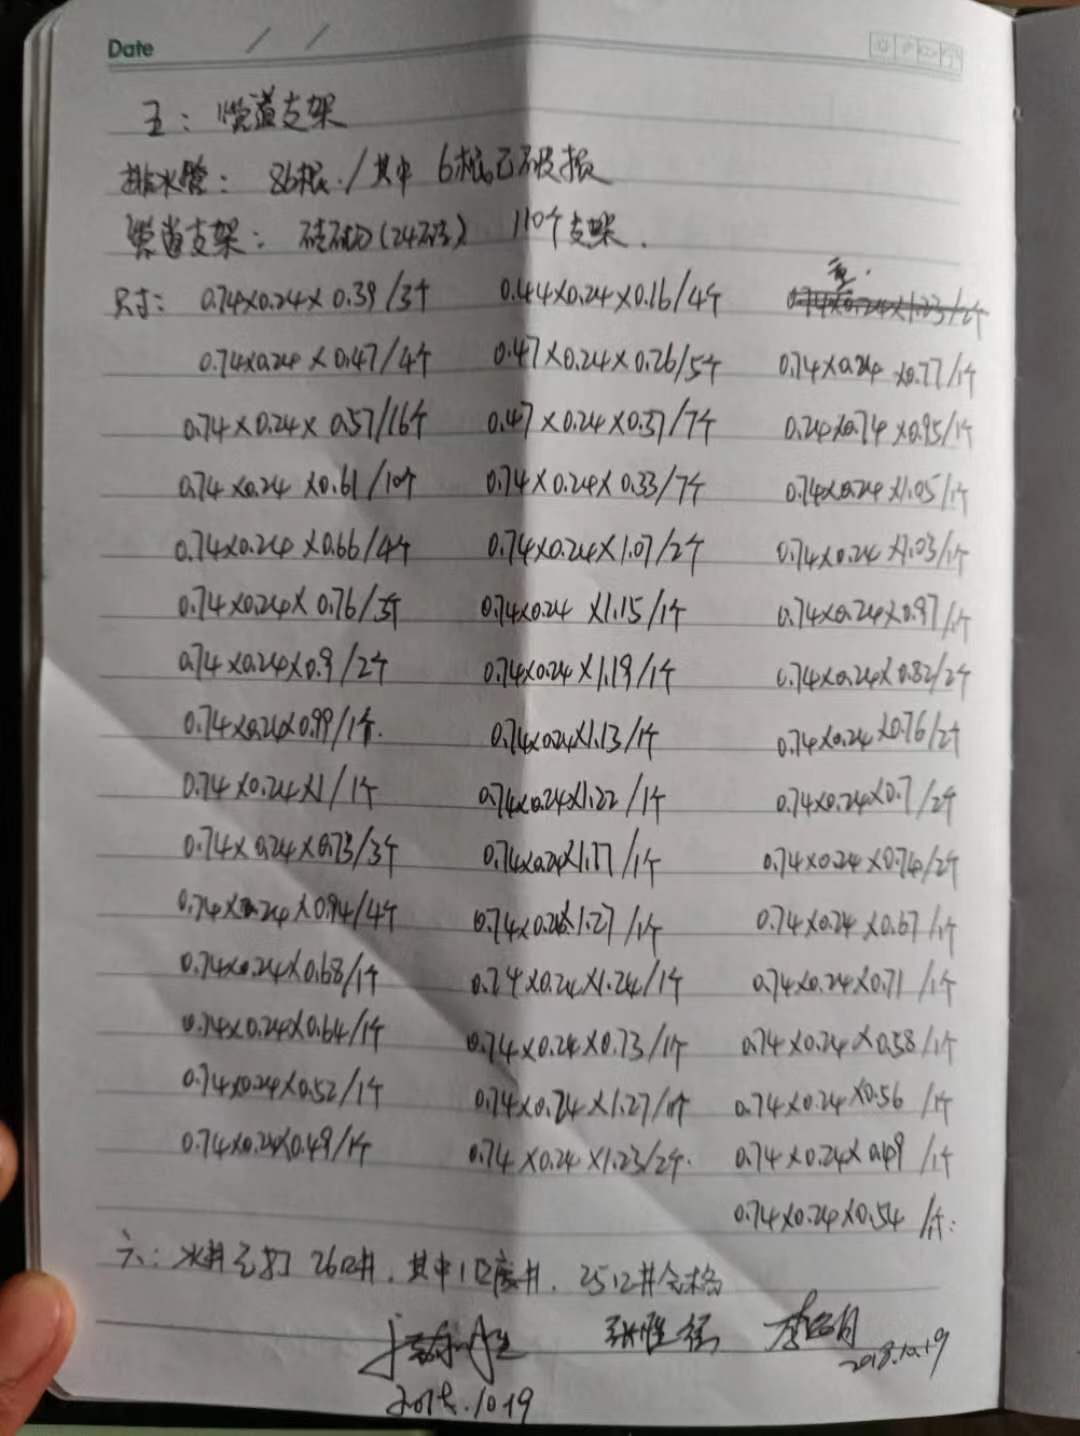 Date / /
五: 管道支架
排水管: 86根./其中6根已破损
管道支架: 砖砌(24砖) 110个支架.
尺寸: 0.74×0.24×0.39/3个 0.44×0.24×0.16/4个 0.74×0.24×1.23/2个 重.
0.74×0.24×0.47/4个 0.47×0.24×0.26/5个 0.74×0.24×0.77/1个
0.74×0.24×0.57/16个 0.47×0.24×0.37/7个 0.24×0.74×0.95/1个
0.74×0.24×0.61/10个 0.74×0.24×0.33/7个 0.74×0.24×1.05/1个
0.74×0.24×0.66/4个 0.74×0.24×1.07/2个 0.74×0.24×1.03/1个
0.74×0.24×0.76/3个 0.74×0.24×1.15/1个 0.74×0.24×0.97/1个
0.74×0.24×0.9/2个 0.74×0.24×1.19/1个 0.74×0.24×0.82/2个
0.74×0.24×0.99/1个. 0.74×0.24×1.13/1个 0.74×0.24×0.76/2个
0.74×0.24×1/1个 0.74×0.24×1.22/1个 0.74×0.24×0.7/2个
0.74×0.24×0.73/3个 0.74×0.24×1.17/1个 0.74×0.24×0.74/2个
0.74×0.24×0.94/4个 0.74×0.24×1.27/1个 0.74×0.24×0.67/1个
0.74×0.24×0.68/1个 0.74×0.24×1.24/1个 0.74×0.24×0.71/1个
0.74×0.24×0.64/1个 0.74×0.24×0.73/1个 0.74×0.24×0.58/1个
0.74×0.24×0.52/1个 0.74×0.24×1.27/1个 0.74×0.24×0.56/1个
0.74×0.24×0.49/1个 0.74×0.24×1.23/2个. 0.74×0.24×0.49/1个
0.74×0.24×0.54/1个.
六: 水井已打26口井. 其中1口废井. 25口井合格
张胜 李
2018.10.19
2018.10.19